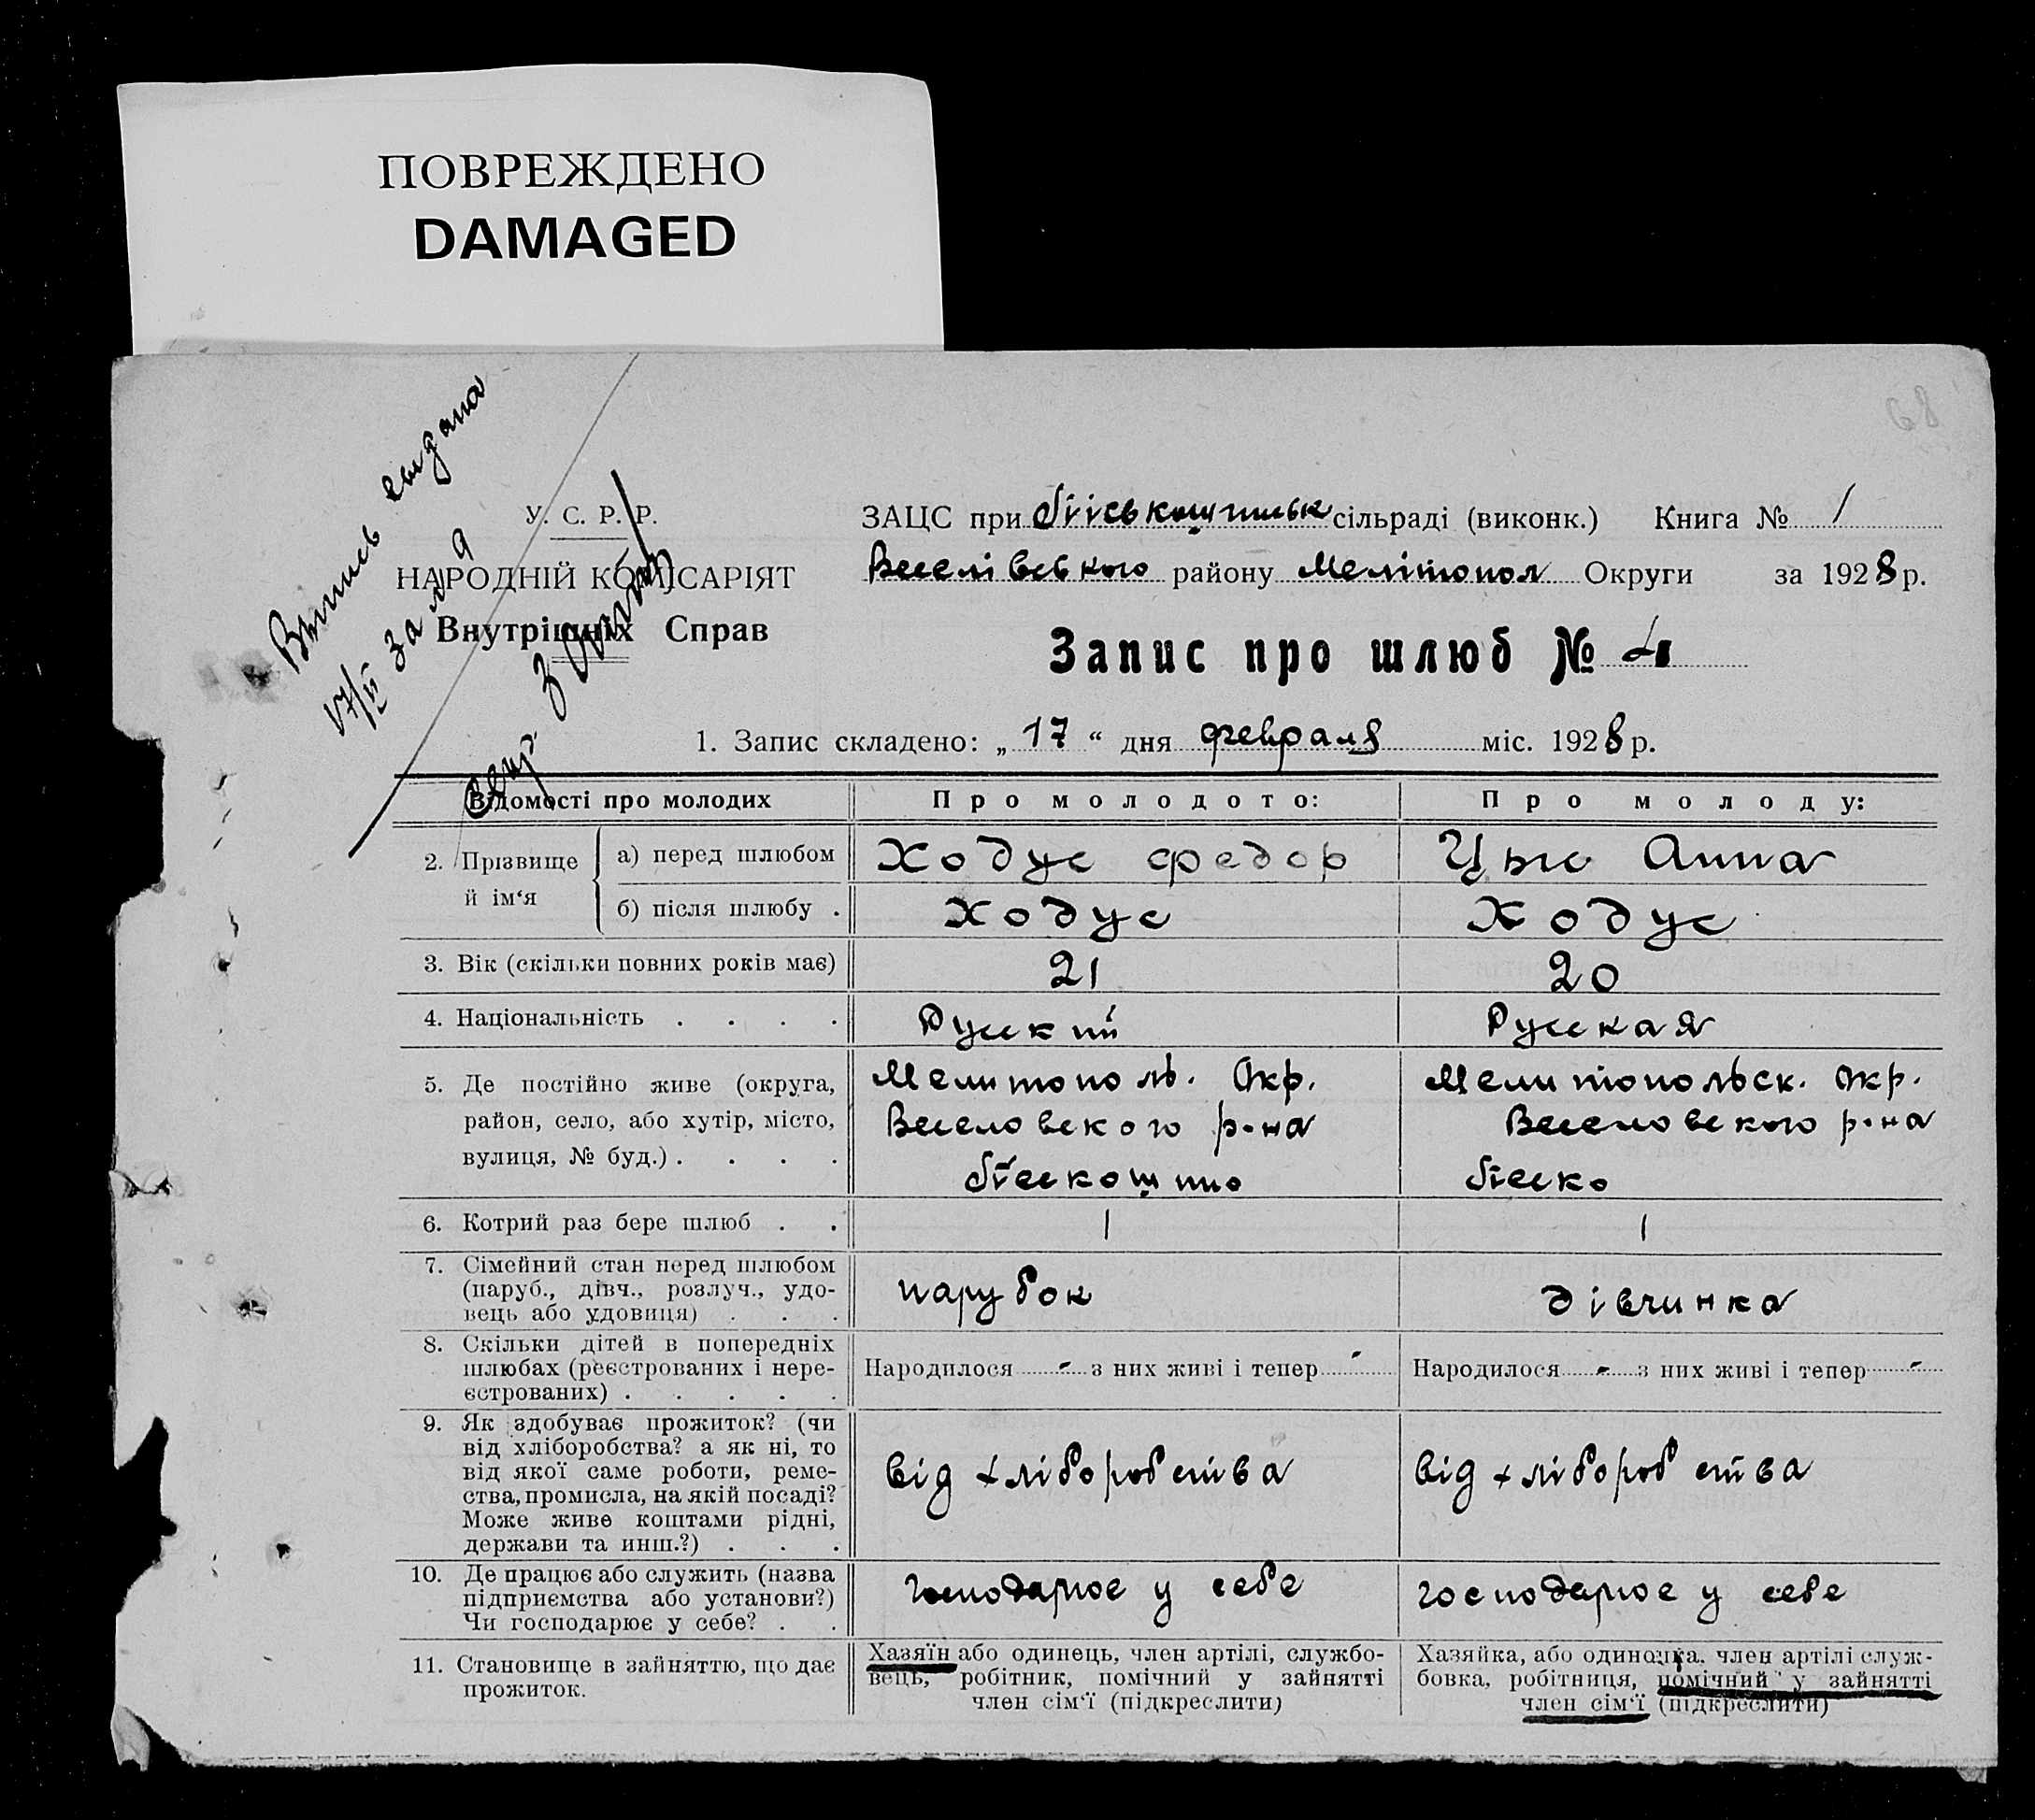 ПОВРЕЖДЕНО
DAMAGED
68
Выпись выдана
У. С. Р. Р.
НАРОДНІЙ КОМІСАРІЯТ
Внутрішніх Справ
ЗАЦС при сільраді (виконк.) Книга № 1
Веселівського району Мелітопол Округи за 1928 р.
Запис про шлюб №
1. Запис складено: „ 17 “ дня февраля міс. 1928 р.
Відомості про молодих Про молодого: Про молоду:
2. Прізвище й ім‘я
а) перед шлюбом Ходус Федор Цыс Анна
б) після шлюбу . Ходус Ходус
3. Вік (скільки повних років має) 21 20
4. Національність . . . . Русский Русская
5. Де постійно живе (округа,
район, село, або хутір, місто,
вулиця, № буд.) . . . .
Мелитополь. Окр.
Веселовского р-на
Мелитопольск. Окр.
Веселовского р-на
6. Котрий раз бере шлюб . . 1 1
7. Сімейний стан перед шлюбом
(паруб., дівч., розлуч., удо-
вець або удовиця) . . .
парубок дівчинка
8. Скільки дітей в попередніх
шлюбах (реєстрованих і нере-
єстрованих) . . . . .
Народилося - з них живі і тепер - Народилося - з них живі і тепер -
9. Як здобуває прожиток? (чи
від хліборобства? а як ні, то
від якої саме роботи, реме-
ства, промисла, на якій посаді?
Може живе коштами рідні,
держави та инш.?) . . .
від хліборобства від хліборобства
10. Де працює або служить (назва
підприємства або установи?)
Чи господарює у себе? . .
господарює у себе господарює у себе
11. Становище в зайняттю, що дає
прожиток.
Хазяїн або одинець, член артілі, службо-
вець, робітник, помічний у зайнятті
член сім‘ї (підкреслити)
Хазяйка, або одиночка, член артілі служ-
бовка, робітниця, помічний у зайнятті
член сім‘ї (підкреслити)